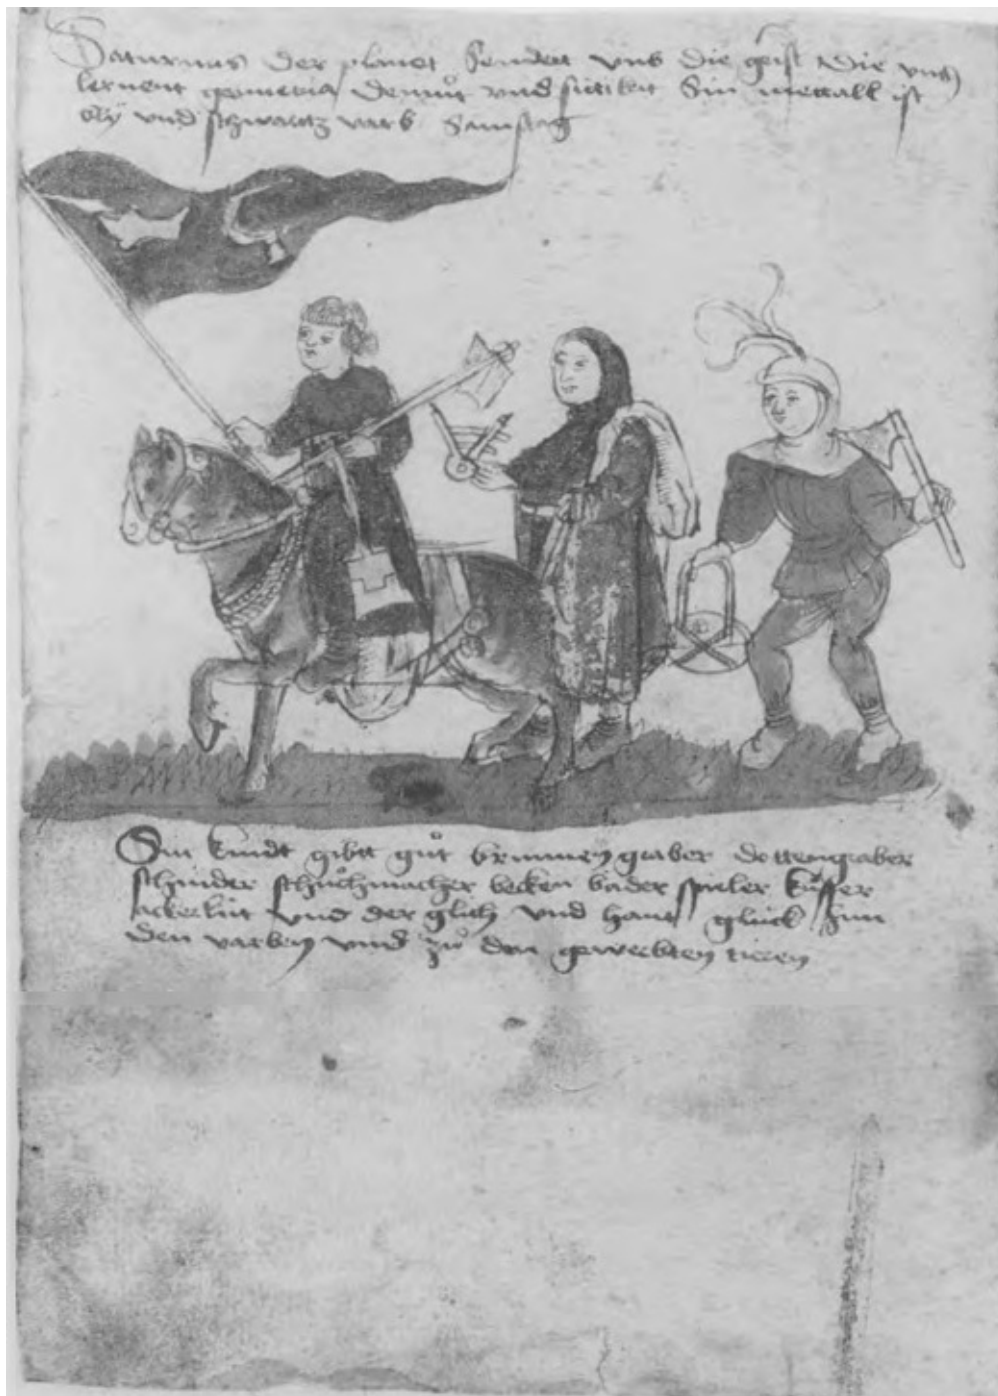 Saturnus der planet Sendett vns die geist die vns
lernent geometria demuͦt vnd stitikeit Sin mettall ist
bly vnd schwartz varb Samstag
Sin kindt gibtt guͦt brunnen graber dottengraber
schinder schuͦchmacher becken bader spieler kuͤffer
ackerlút vnd der glich vnd hant glúck zuͦn
den varben vnd zuͦ den gewerbten tieren